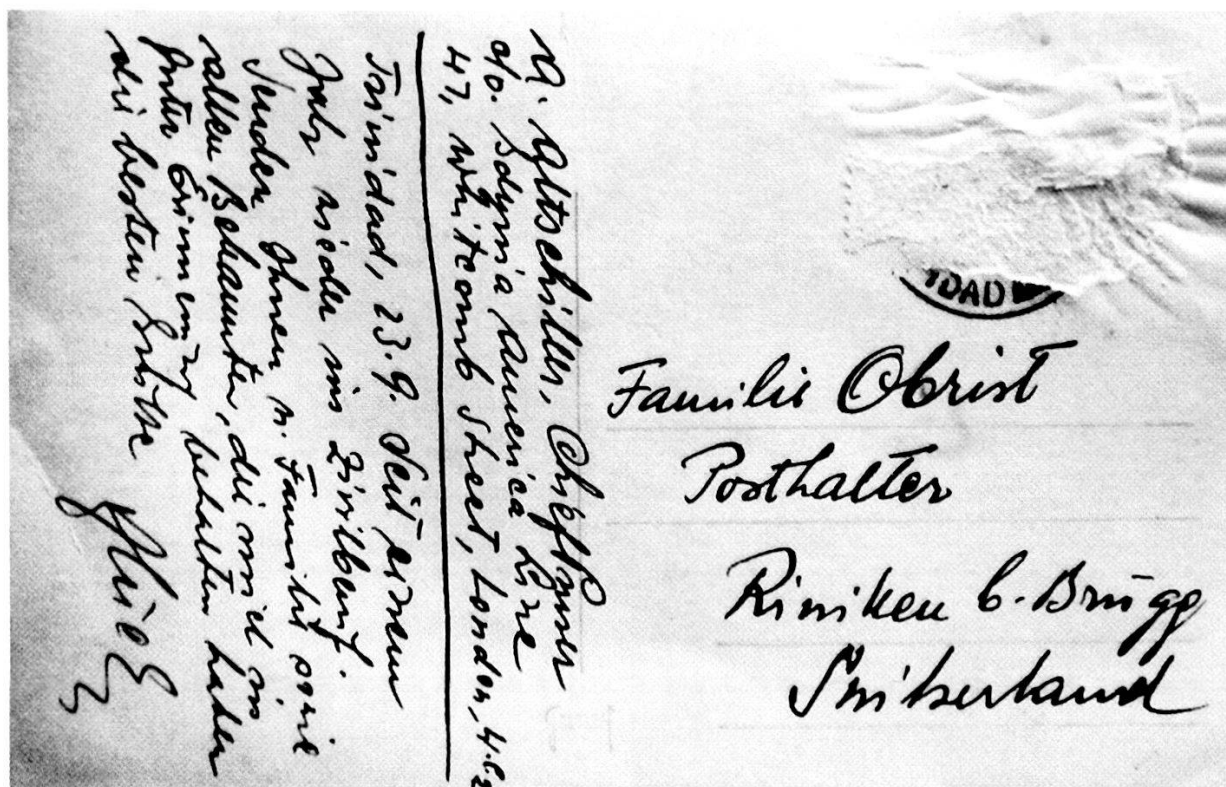 A. Altschiller,
c/o. Gdynia America Line
47, Whitcomb Street, London, W.C.2
Trinidad, 23.9. Seit einem
Jahr wieder im Zivilberuf.
Sende Ihnen u. Familie sowie
allen Bekannten, die mich in
guter Erinnerung behalten haben
die besten Grüsse
IDAD
Familie Obrist
Posthalter
Riniken b. Brugg
Switzerland